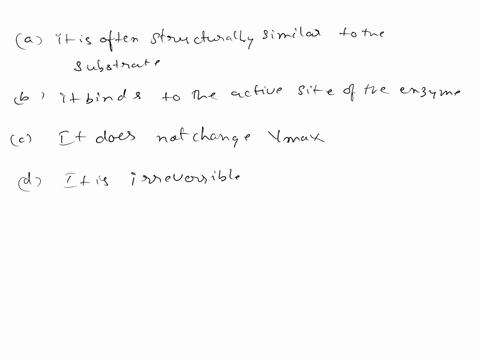 (a) it is often structurally similar to the
substrate
(b) it binds to the active site of the enzyme
(c) It does not change Vmax
(d) It is irreversible